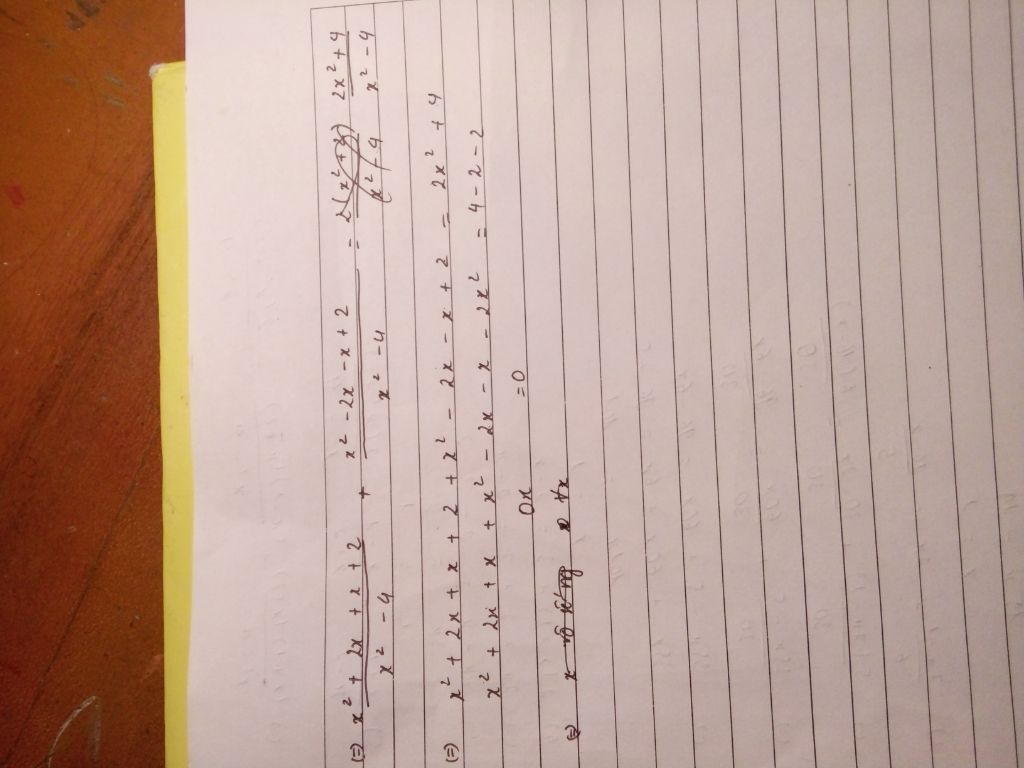 (=) x² + 2x + x + 2 + x² - 2x - x + 2 = 2x² + 4
x² - 4 x² - 4 x² - 4
(=) x² + 2x + x + 2 + x² - 2x - x + 2 = 2x² + 4
x² + 2x + x + x² - 2x - x - 2x² = 4 - 2 - 2
0x = 0
(=) x